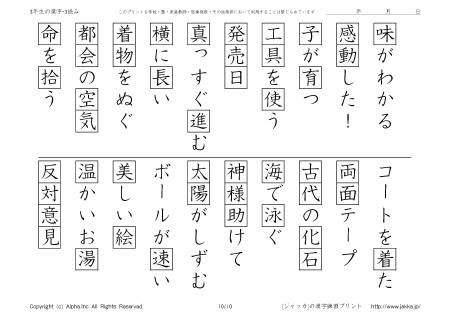 3年生の漢字-3読み
このプリントを学校・塾・家庭教師・医療機関・その他施設において利用することは禁じられております
年 月 日
味がわかる
感動した！
子が育つ
工具を使う
発売日
真っすぐ進む
横に長い
着物をぬぐ
都会の空気
命を拾う
コートを着た
両面テープ
古代の化石
海で泳ぐ
神様助けて
太陽がしずむ
ボールが速い
美しい絵
温かいお湯
反対意見
Copyright (c) Alpha.Inc All Rights Reserved.
10/10
[ジャッカ]の漢字練習プリント http://www.jakka.jp/